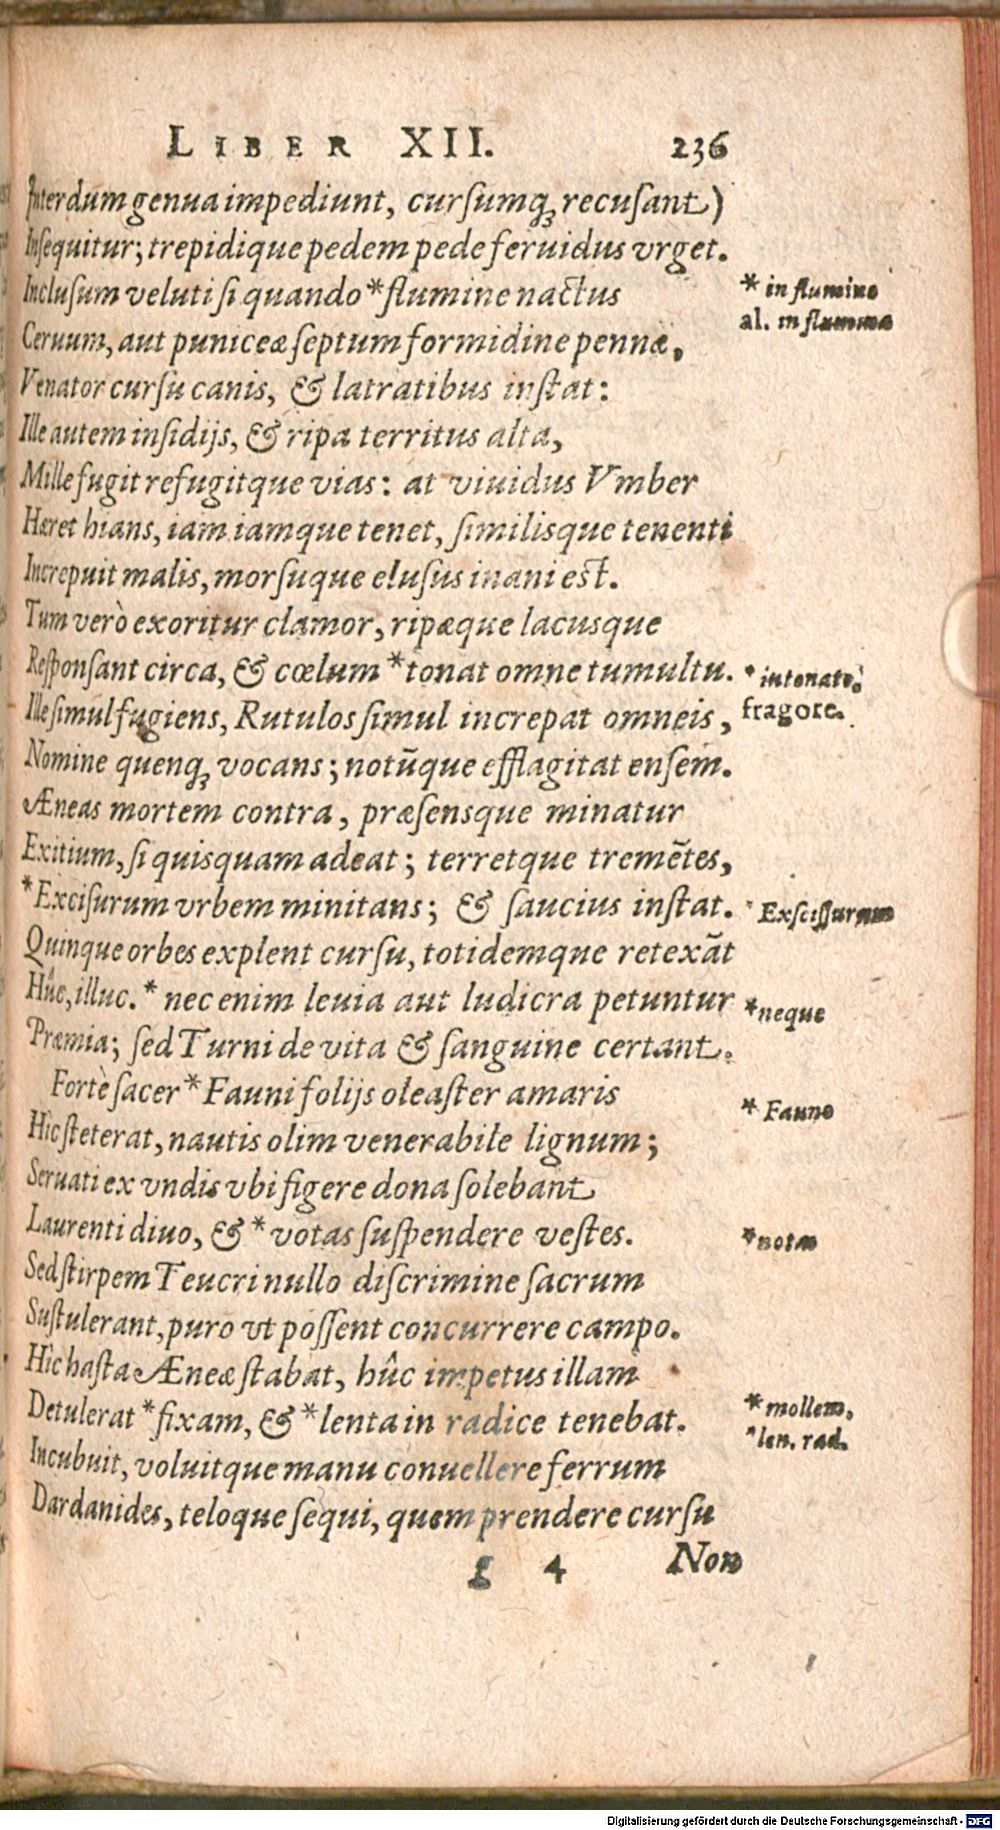 LIBER XII. 236
Interdum genua impediunt, cursumq; recusant)
Insequitur; trepidique pedem pede feruidus vrget.
Inclusum veluti si quando *flumine nactus
* in flumine
al. in flumine
Ceruum, aut puniceæ septum formidine pennæ,
Venator cursu canis, & latratibus instat:
Ille autem insidijs, & ripa territus alta,
Mille fugit refugitque vias: at viuidus Vmber
Hæret hians, iam iamque tenet, similisque tenenti
Increpuit malis, morsuque elusus inani est.
Tum verò exoritur clamor, ripæque lacusque
Responsant circa, & cœlum *tonat omne tumultu.
* intonate,
fragore.
Ille simul fugiens, Rutulos simul increpat omneis,
Nomine quenq; vocans; notūque efflagitat ensem.
Æneas mortem contra, præsensque minatur
Exitium, si quisquam adeat; terretque tremētes,
*Excisurum vrbem minitans; & saucius instat.
* Exscissurum
Quinque orbes explent cursu, totidemque retexāt
Hûc, illuc. * nec enim leuia aut ludicra petuntur
*neque
Præmia; sed Turni de vita & sanguine certant.
Fortè sacer *Fauni folijs oleaster amaris
* Fauno
Hic steterat, nautis olim venerabile lignum;
Seruati ex vndis vbi figere dona solebant
Laurenti diuo, & *votas suspendere vestes.
*notas
Sed stirpem Teucri nullo discrimine sacrum
Sustulerant, puro vt possent concurrere campo.
Hic hasta Æneæ stabat, hûc impetus illam
Detulerat *fixam, & *lenta in radice tenebat.
*mollem,
*len. rad.
Incubuit, voluitque manu conuellere ferrum
Dardanides, teloque sequi, quem prendere cursu
g 4 Non
Digitalisierung gefördert durch die Deutsche Forschungsgemeinschaft - DFG